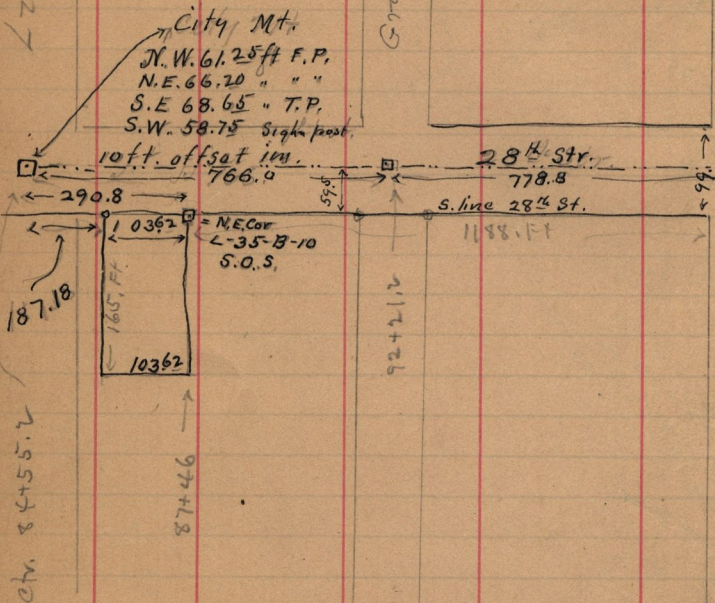 City Mt.
N.W. 61.25 ft F.P.
N.E. 66.20 " "
S.E 68.65 " T.P.
S.W. 58.75 Sign post.
10 ft. offset
28th Str.
766.0
778.8
290.8
59.5
99.
S. line 28th St.
1188. Ft
103.62
= N.E. Cor
L-35-B-10
S.O.S.
187.18
165. Ft
103.62
92+21.2
87+46
Ctr. 84+55.2